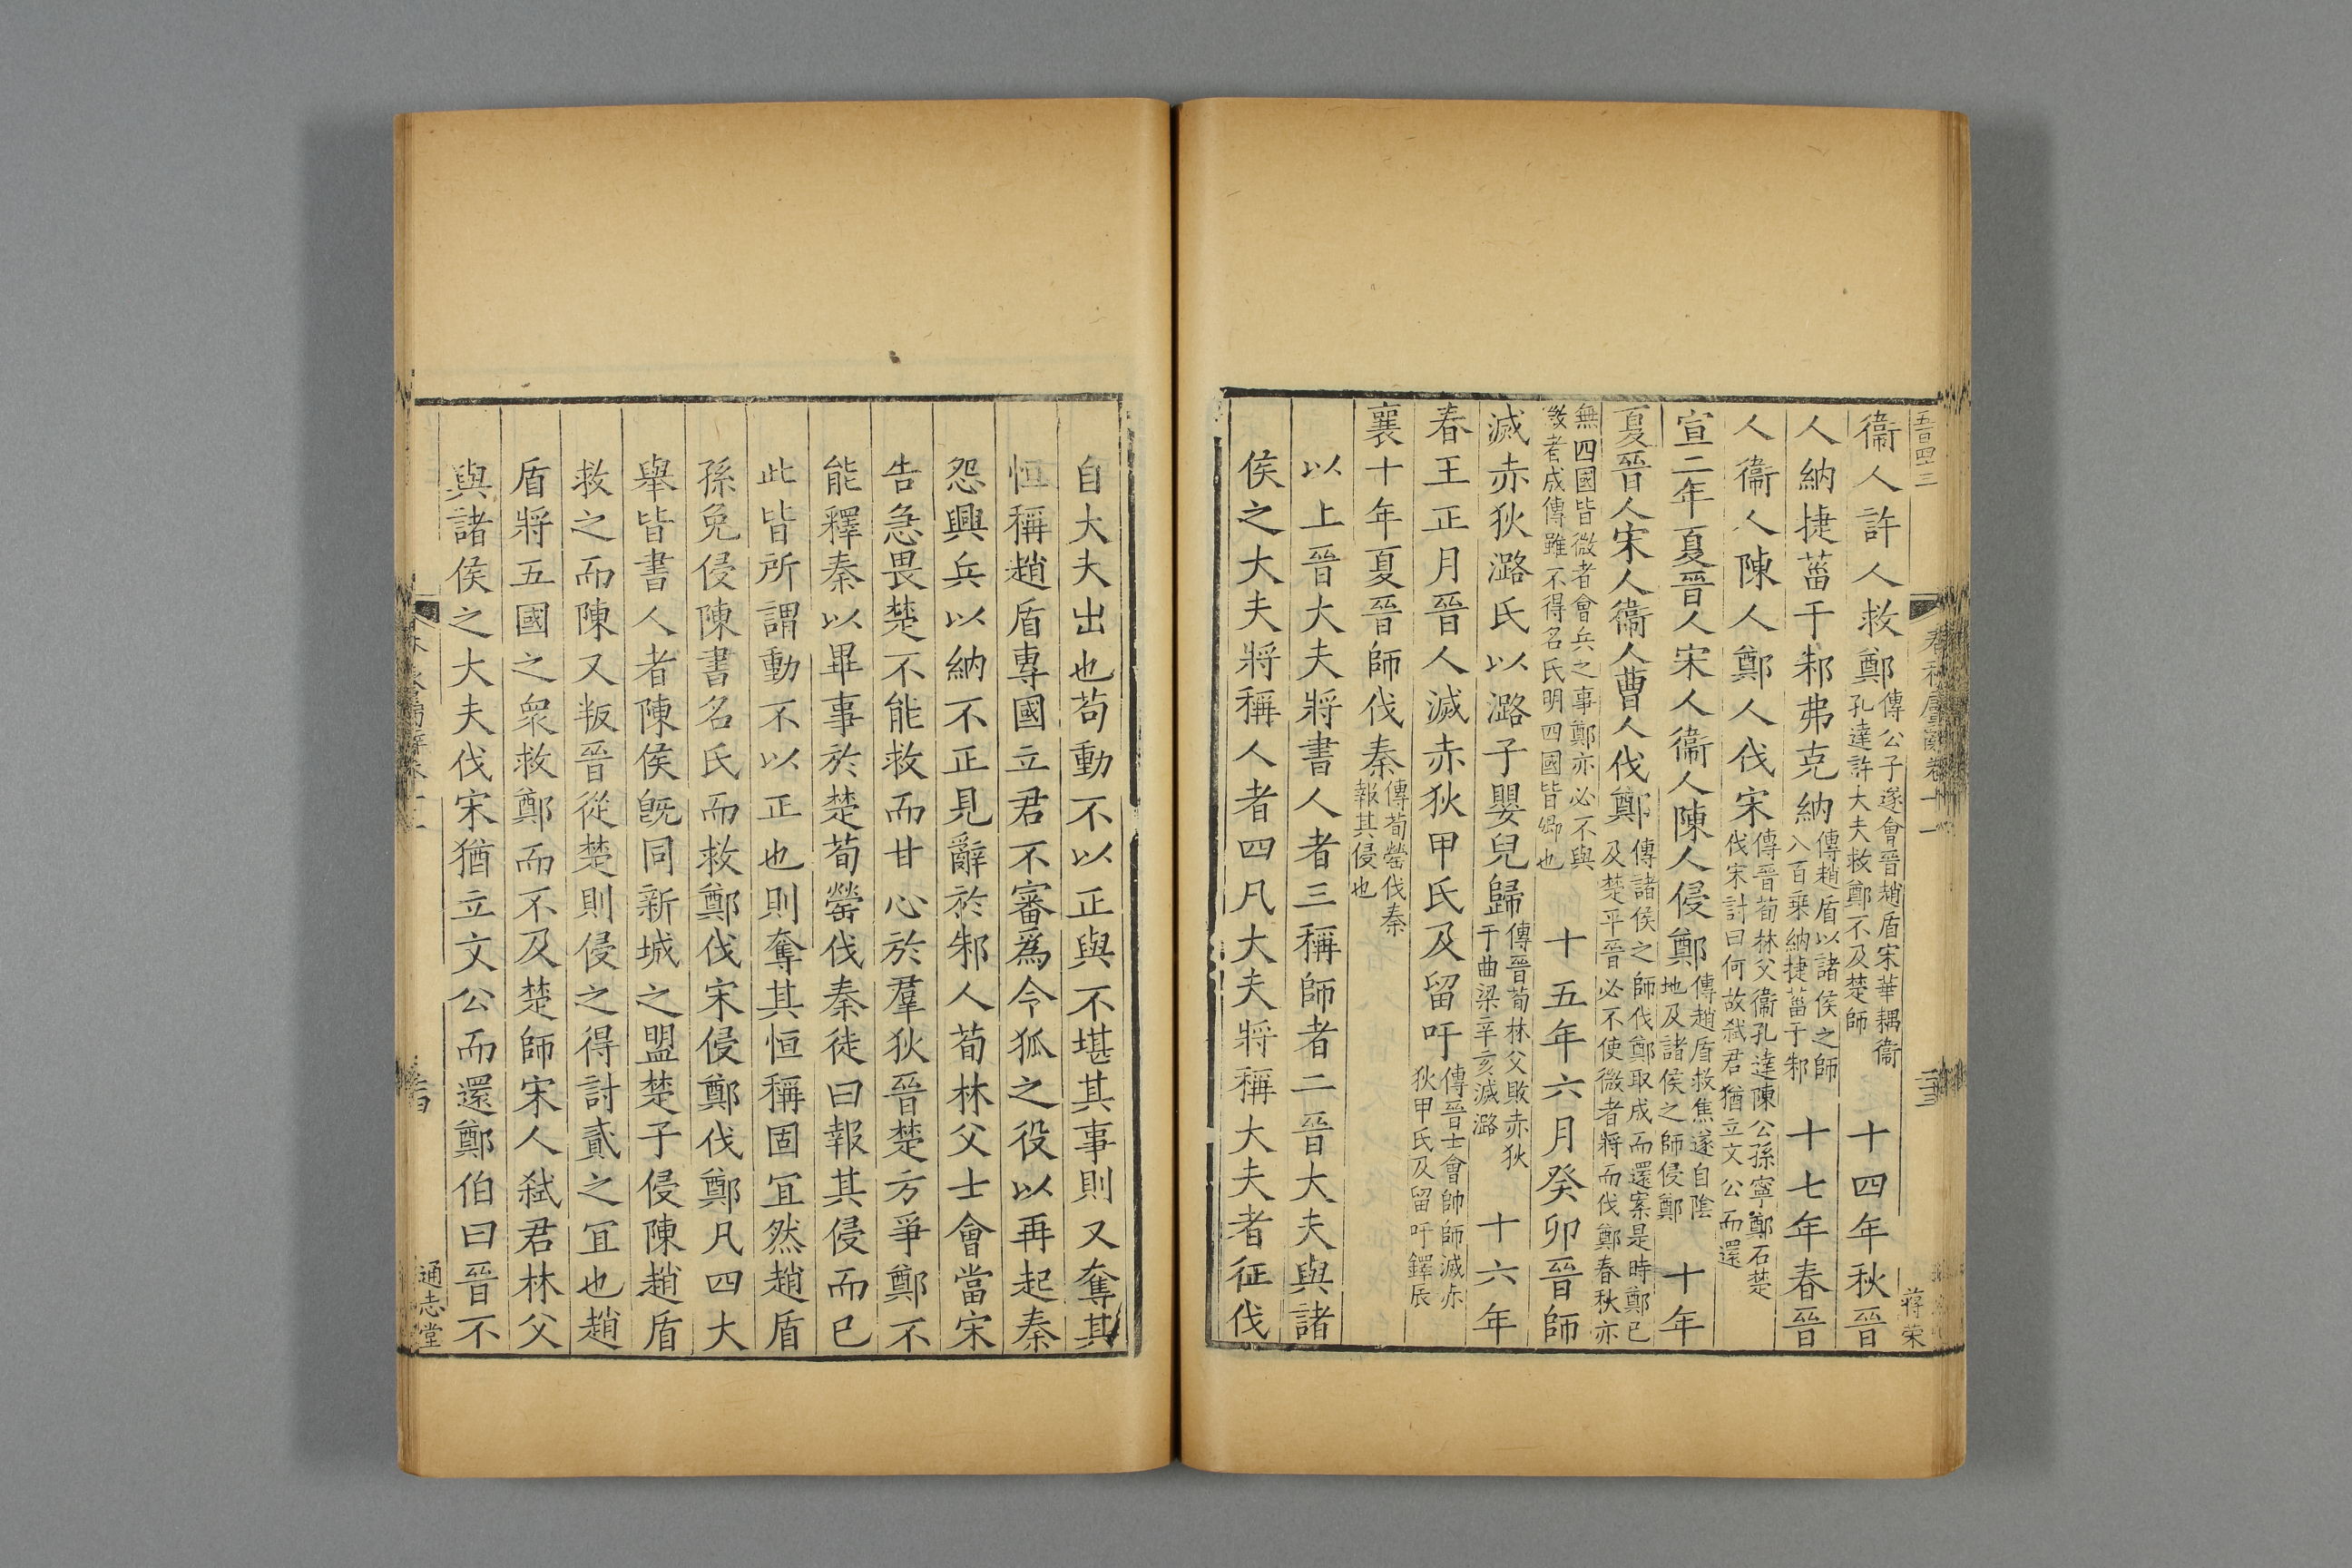 五百四十三
春秋屬辭卷十一
二十三
蔣荣
衞人許人救鄭傳公子遂會晉趙盾宋華耦衞孔達許大夫救鄭不及楚師十四年秋晉
人納捷菑于邾弗克納傳趙盾以諸侯之師八百乘納捷菑于邾十七年春晉
人衞人陳人鄭人伐宋傳晉荀林父衞孔達陳公孫寧鄭石楚伐宋討曰何故弑君猶立文公而還
宣二年夏晉人宋人衞人陳人侵鄭傳趙盾救焦遂自陰地及諸侯之師侵鄭十年
夏晉人宋人衞人曹人伐鄭傳諸侯之師伐鄭取成而還案是時鄭已及楚平晉必不使微者將而伐鄭春秋亦
無四國皆微者會兵之事鄭亦必不與微者成傳雖不得名氏明四國皆卿也十五年六月癸卯晉師
滅赤狄潞氏以潞子嬰兒歸傳晉荀林父敗赤狄于曲梁辛亥滅潞十六年
春王正月晉人滅赤狄甲氏及留吁傳晉士會帥師滅赤狄甲氏及留吁鐸辰
襄十年夏晉師伐秦傳荀罃伐秦報其侵也
以上晉大夫將書人者三稱師者二晉大夫與諸
侯之大夫將稱人者四凡大夫將稱大夫者征伐
自大夫出也苟動不以正與不堪其事則又奪其
恒稱趙盾專國立君不審爲令狐之役以再起秦
怨興兵以納不正見辭於邾人荀林父士會當宋
告急畏楚不能救而甘心於羣狄晉楚方爭鄭不
能釋秦以畢事於楚荀罃伐秦徒曰報其侵而已
此皆所謂動不以正也則奪其恒稱固宜然趙盾
孫免侵陳書名氏而救鄭伐宋侵鄭伐鄭凡四大
舉皆書人者陳侯旣同新城之盟楚子侵陳趙盾
救之而陳又叛晉從楚則侵之得討貳之宜也趙
盾將五國之衆救鄭而不及楚師宋人弑君林父
與諸侯之大夫伐宋猶立文公而還鄭伯曰晉不
通志堂